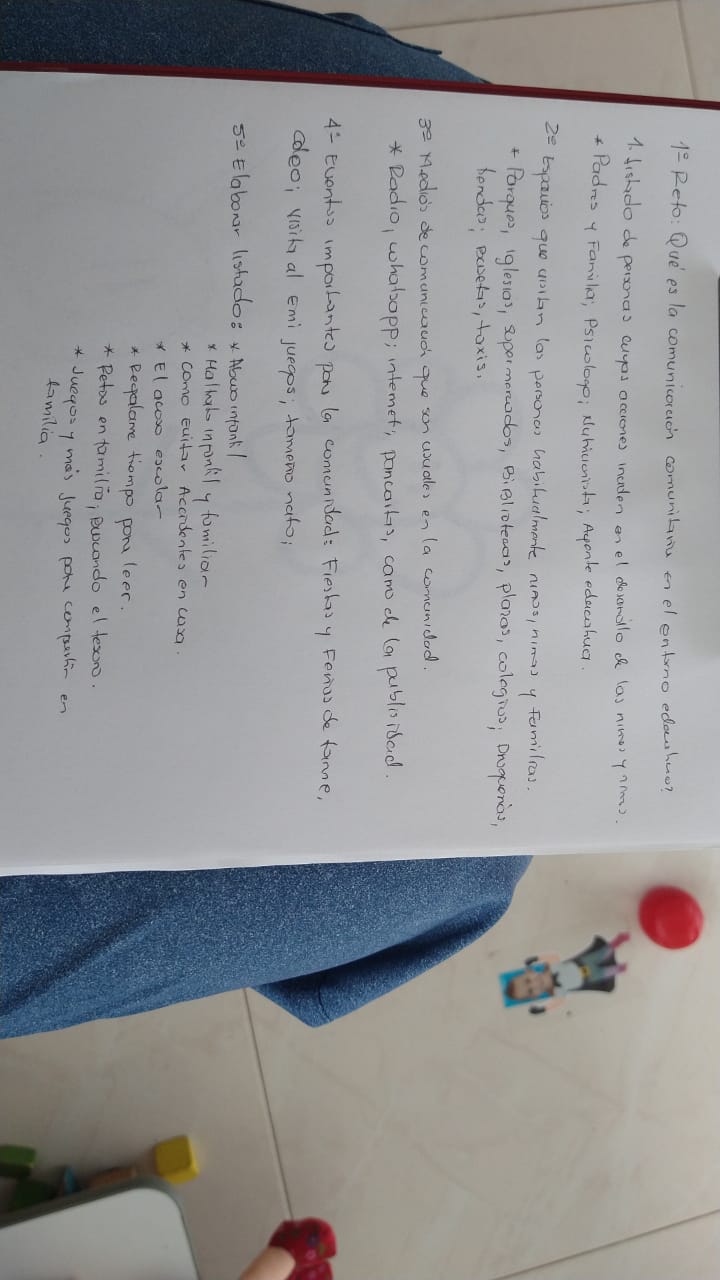 1º Reto: Qué es la comunicación comunitaria en el entorno educativo?
1. Listado de personas cuyas acciones inciden en el desarrollo de las niñas y niños.
* Padres y Familia, Psicologo; Nutricionista; Agente educativa.
2º Espacios que visitan las personas habitualmente niños, niñas y familias.
* Parques, iglesias, supermercados, Bibliotecas, plazas, colegios, Droguerias,
tiendas; taxis.
3º Medios de comunicación que son usuales en la comunidad.
* Radio, whatsapp; internet; pancartas, carro de la publisidad.
4º Eventos importantes para la comunidad: Fiestas y Ferias de
visita al Emi juegos;
5º Elaborar listado: * Abuso infantil
* Maltrato infantil y familiar
* Como evitar Accidentes en casa.
* El acoso escolar
* Regalame tiempo para leer.
* Retos en familia, buscando el tesoro.
* Juegos y más juegos para compartir en
familia.